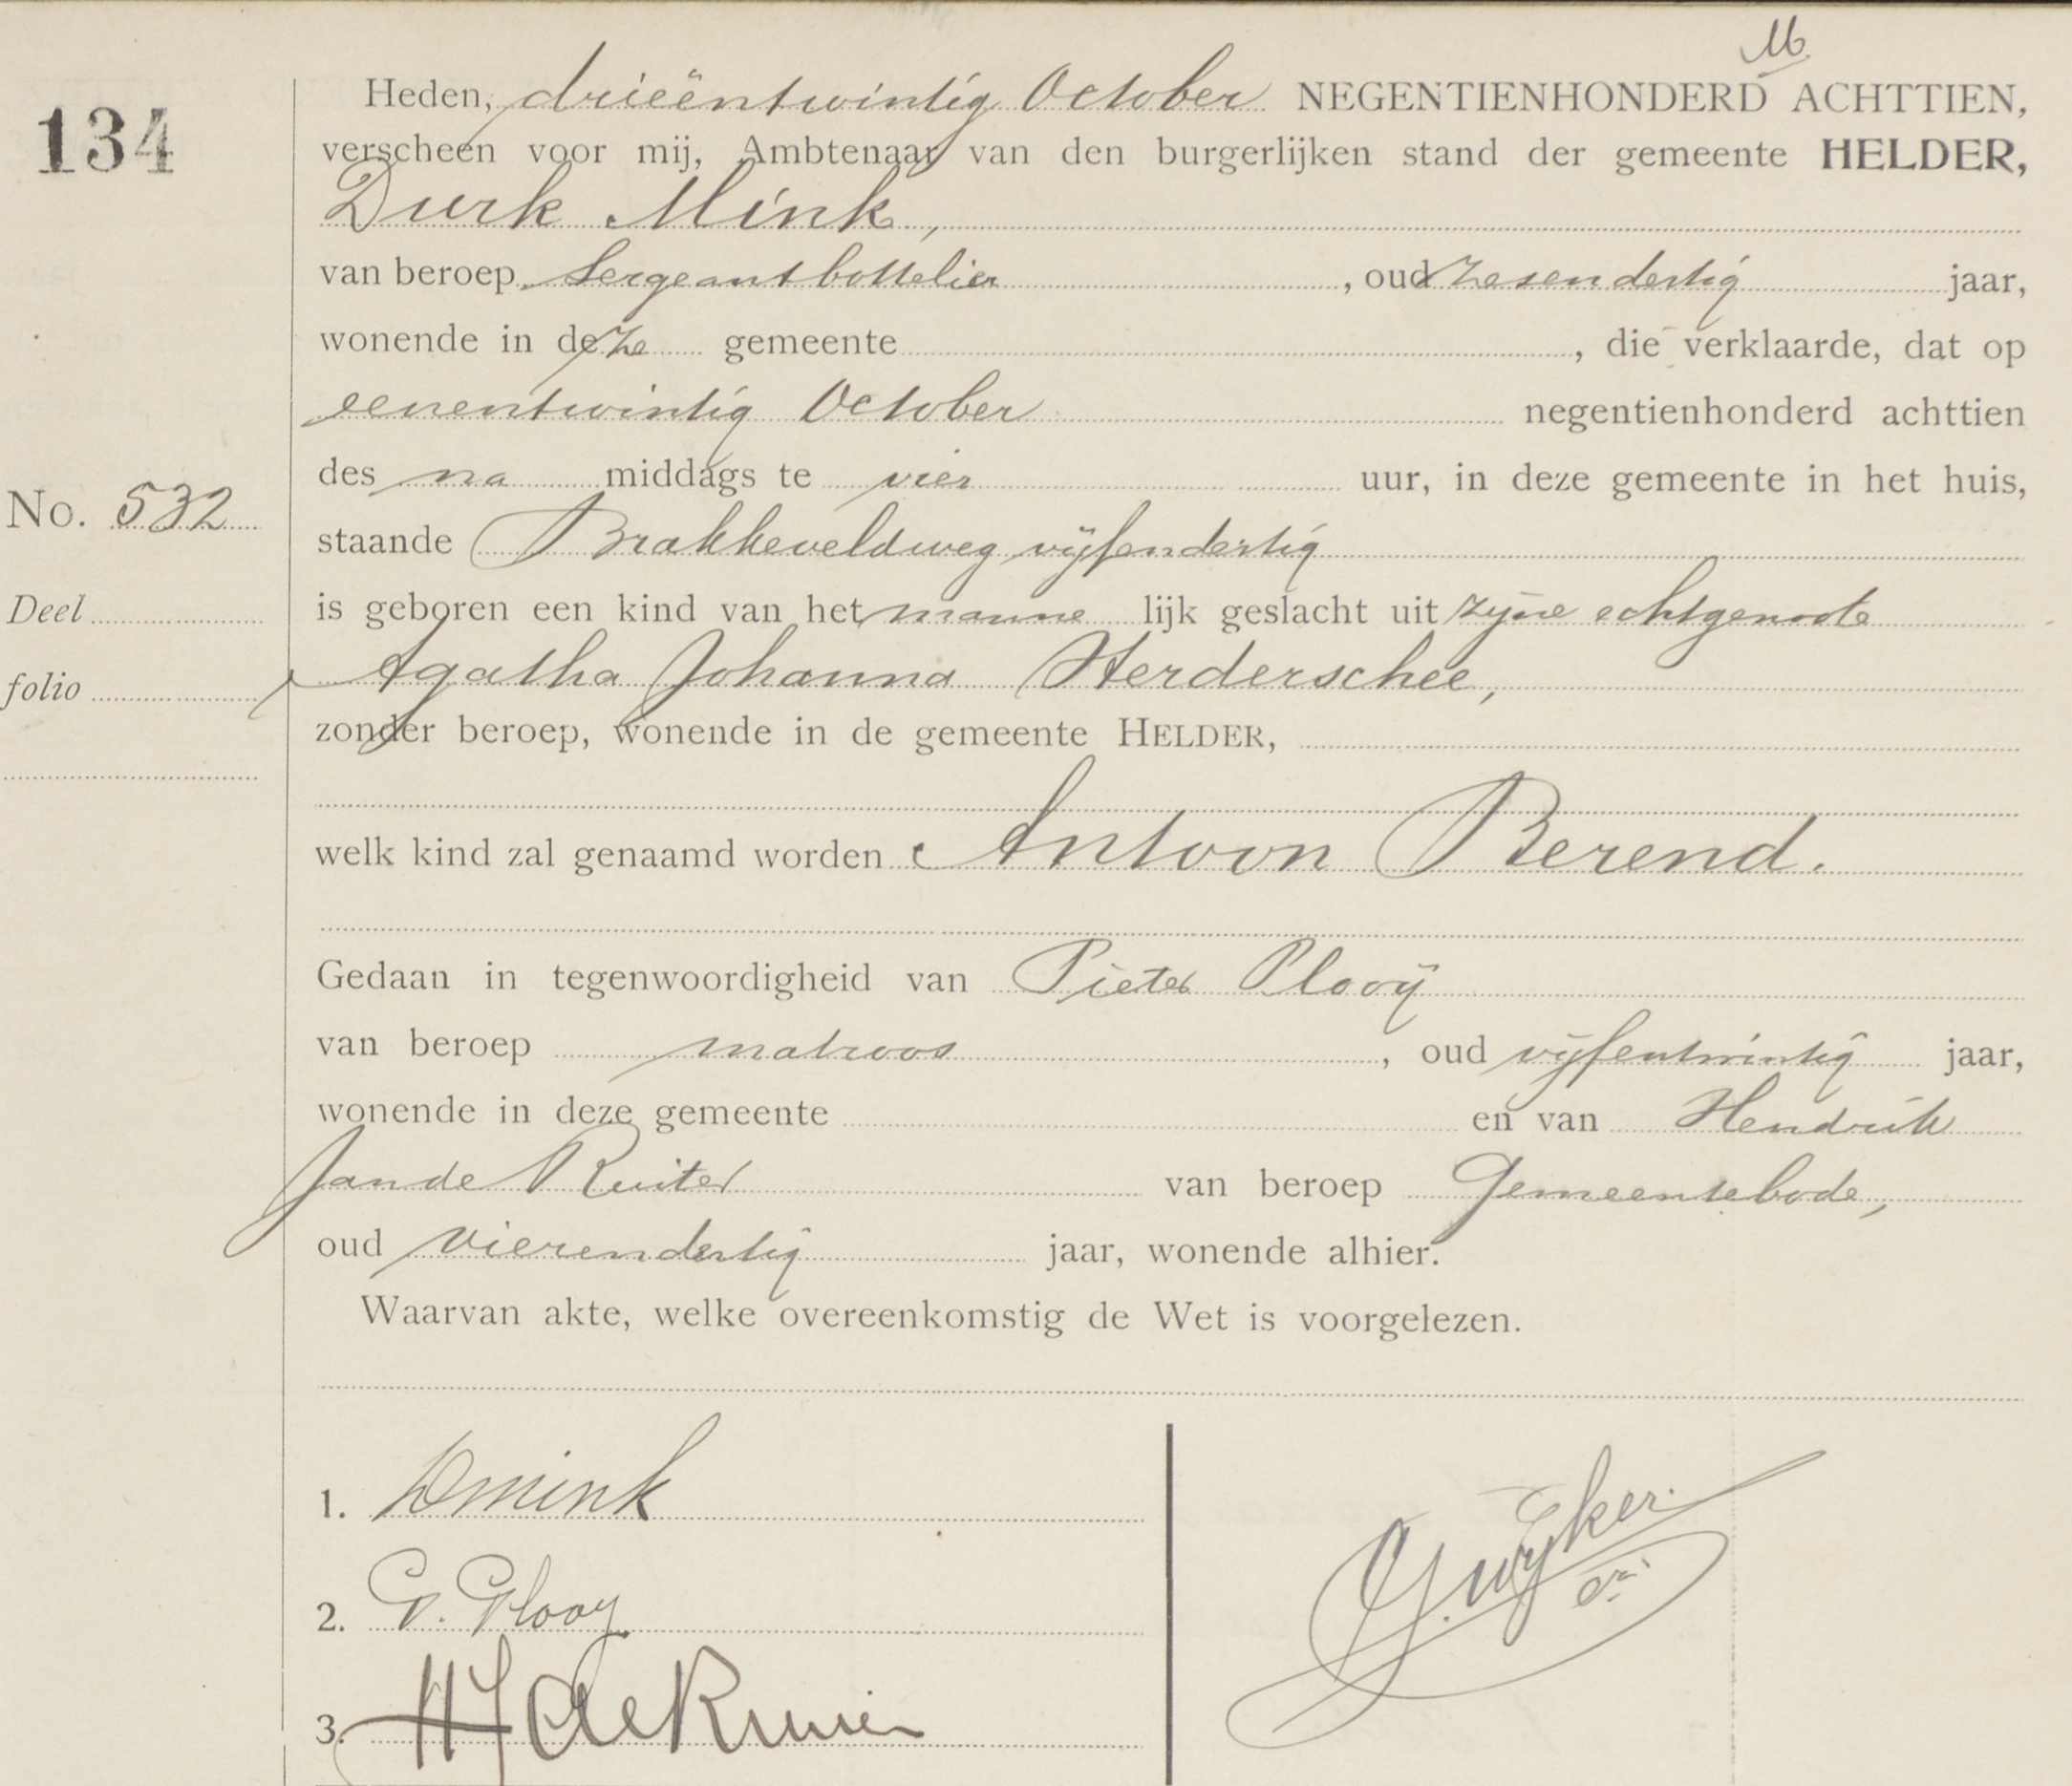 M
134
Heden, drieëntwintig October NEGENTIENHONDERD ACHTTIEN,
verscheen voor mij, Ambtenaar van den burgerlijken stand der gemeente HELDER,
Durk Mink,
van beroep Sergeantbottelier, oud zesendertig jaar,
wonende in deze gemeente, die verklaarde, dat op
eenentwintig October negentienhonderd achttien
des na middags te vier uur, in deze gemeente in het huis,
No. 532
staande Brakkeveldweg vijfendertig
Deel
is geboren een kind van het manne lijk geslacht uit zijne echtgenoote
folio
Agatha Johanna Herderschee,
zonder beroep, wonende in de gemeente HELDER,
welk kind zal genaamd worden Antoon Berend.
Gedaan in tegenwoordigheid van Pieter Plooÿ
van beroep matroos, oud vijfentwintig jaar,
wonende in deze gemeente en van Hendrik
Jan de Ruiter van beroep Gemeentebode,
oud vierendertig jaar, wonende alhier.
Waarvan akte, welke overeenkomstig de Wet is voorgelezen.
1. DMink
2. P. Plooy
3. HJ de Ruiter